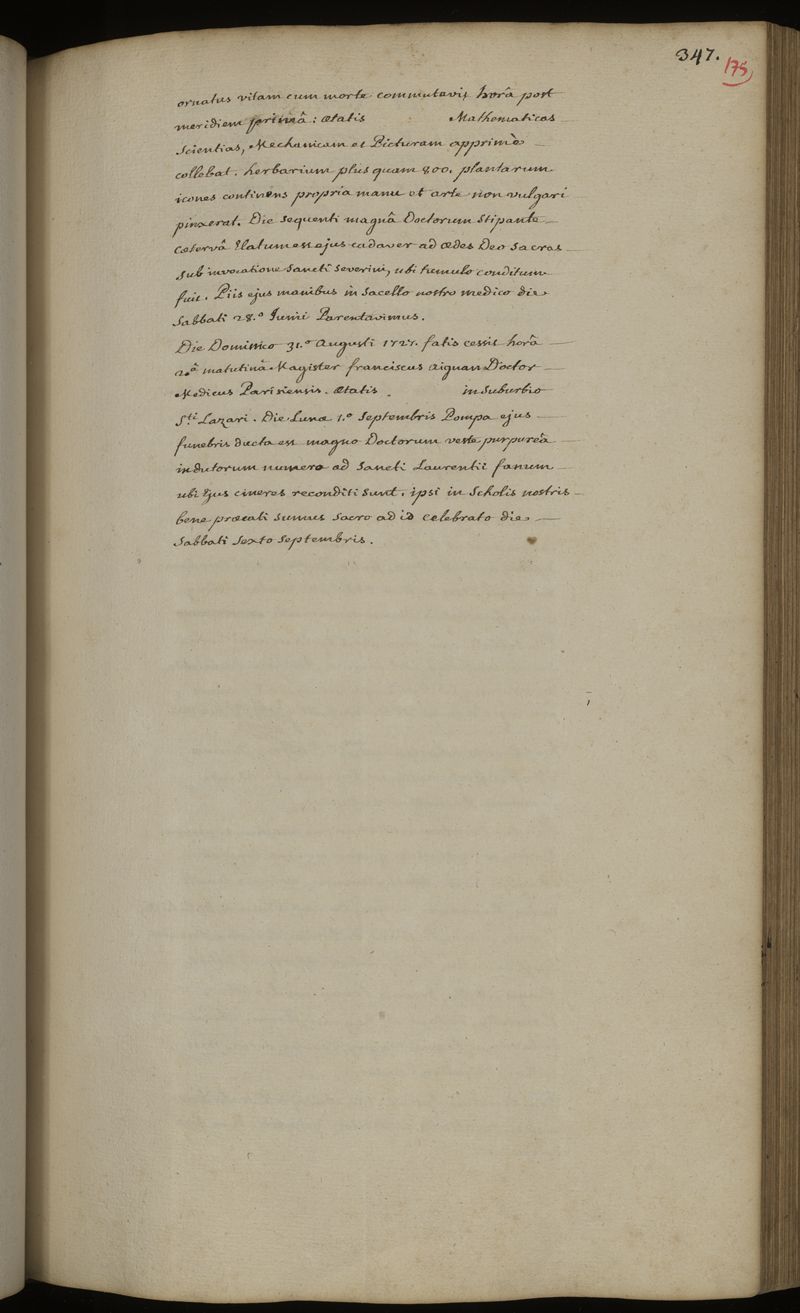 347.
175
ornatus vitam cum morte commutavit horâ post
meridiem primâ : ætatis Mathematicas
Scientias, Mechanicam et Picturam apprimè
collebat. herbarium plus quam 800. plantarum
icones continens propria manu et arte non vulgari
pinxerat. Die sequenti magnâ Doctorum Stipante
Catervâ Elatum est ejus cadaver ad ædes Deo Sacras
sub invocatione Sancti Severini, ubi tumulo conditum
fuit. Piis ejus manibus in Sacello nostro medico die
Sabbati 28.º Junii Parentavimus.
Die Dominico 31.º Augusti 1727. fatis cessit horâ
2.â matutinâ Magister franciscus Aignan Doctor
Medicus Parisiensis. ætatis in Suburbio
S.ti Lazari. Die Lunæ 1.º Septembris Pompa ejus
funebris ducta est magno Doctorum veste purpureâ
indutorum numero ad Sancti Laurentii fanum
ubi Ejus cineres reconditi sunt. ipsi in Scholis nostris
bene præcati sumus Sacro ad id celebrato die
Sabbati Sexto Septembris.